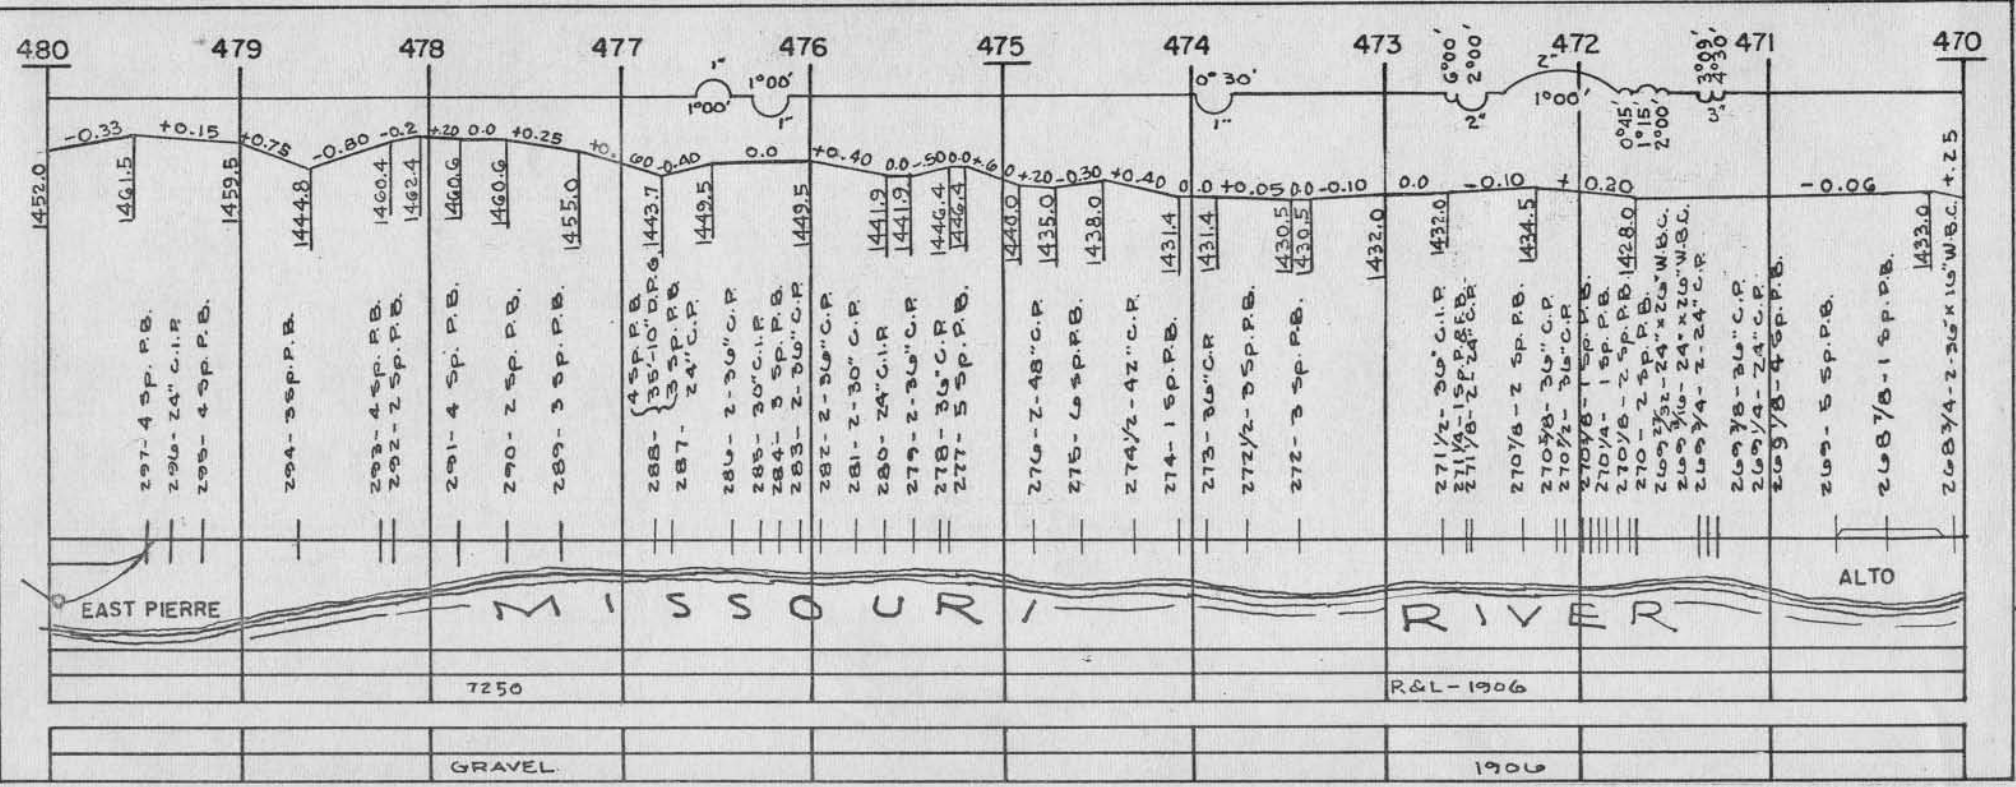 480 479 478 477 476 475 474 473 472 471 470
1" 1°00' 1°00' 1"
0°30' 1"
6°00' 2°00' 2"
2" 1°00'
0°45' 1°15' 2°00'
3°09' 4°30' 3"
-0.33 +0.15 +0.75 -0.80 -0.2 +.20 0.0 +0.25 +0.60 -0.40 0.0 +0.40 0.0 -.50 0.0 +.60 +.20 -0.30 +0.40 0.0 +0.05 0.0 -0.10 0.0 -0.10 + 0.20 -0.06 +.25
1452.0 1461.5 1459.5 1444.8 1460.4 1462.4 1460.6 1460.6 1455.0 1443.7 1449.5 1449.5 1441.9 1441.9 1446.4 1446.4 1440.0 1435.0 1438.0 1431.4 1431.4 1430.5 1430.5 1432.0 1432.0 1434.5 1428.0 1433.0
297-4 Sp. P.B.
296-24" C.I.P.
295-4 Sp. P.B.
294-3 Sp. P.B.
293-4 Sp. P.B.
292-2 Sp. P.B.
291-4 Sp. P.B.
290-2 Sp. P.B.
289-3 Sp. P.B.
288- 4 Sp. P.B. 35'-10" D.P.G. 3 Sp. P.B.
287-24" C.P.
286-2-36" C.P.
285-30" C.I.P.
284-3 Sp. P.B.
283-2-36" C.P.
282-2-36" C.P.
281-2-30" C.P.
280-24" C.I.P.
279-2-36" C.P.
278-36" C.P.
277-5 Sp. P.B.
276-2-48" C.P.
275-6 Sp. P.B.
274 1/2-42" C.P.
274-1 Sp. P.B.
273-36" C.P.
272 1/2-3 Sp. P.B.
272-3 Sp. P.B.
271 1/2-36" C.I.P.
271 1/4-1 Sp. P.B.
271 1/8-2-24" C.P.
270 7/8-2 Sp. P.B.
270 5/8-36" C.P.
270 1/2-36" C.P.
270 3/8-1 Sp. P.B.
270 1/4-1 Sp. P.B.
270 1/8-2 Sp. P.B.
270-2 Sp. P.B.
269 27/32-24" x 26" W.B.C.
269 3/16-24" x 26" W.B.C.
269 3/4-2-24" C.P.
269 3/8-36" C.P.
269 1/4-24" C.P.
269 1/8-4 Sp. P.B.
269-5 Sp. P.B.
268 7/8-1 Sp. P.B.
268 3/4-2-36" x 16" W.B.C.
EAST PIERRE
MISSOURI RIVER
ALTO
7250 R&L-1906
GRAVEL 1906